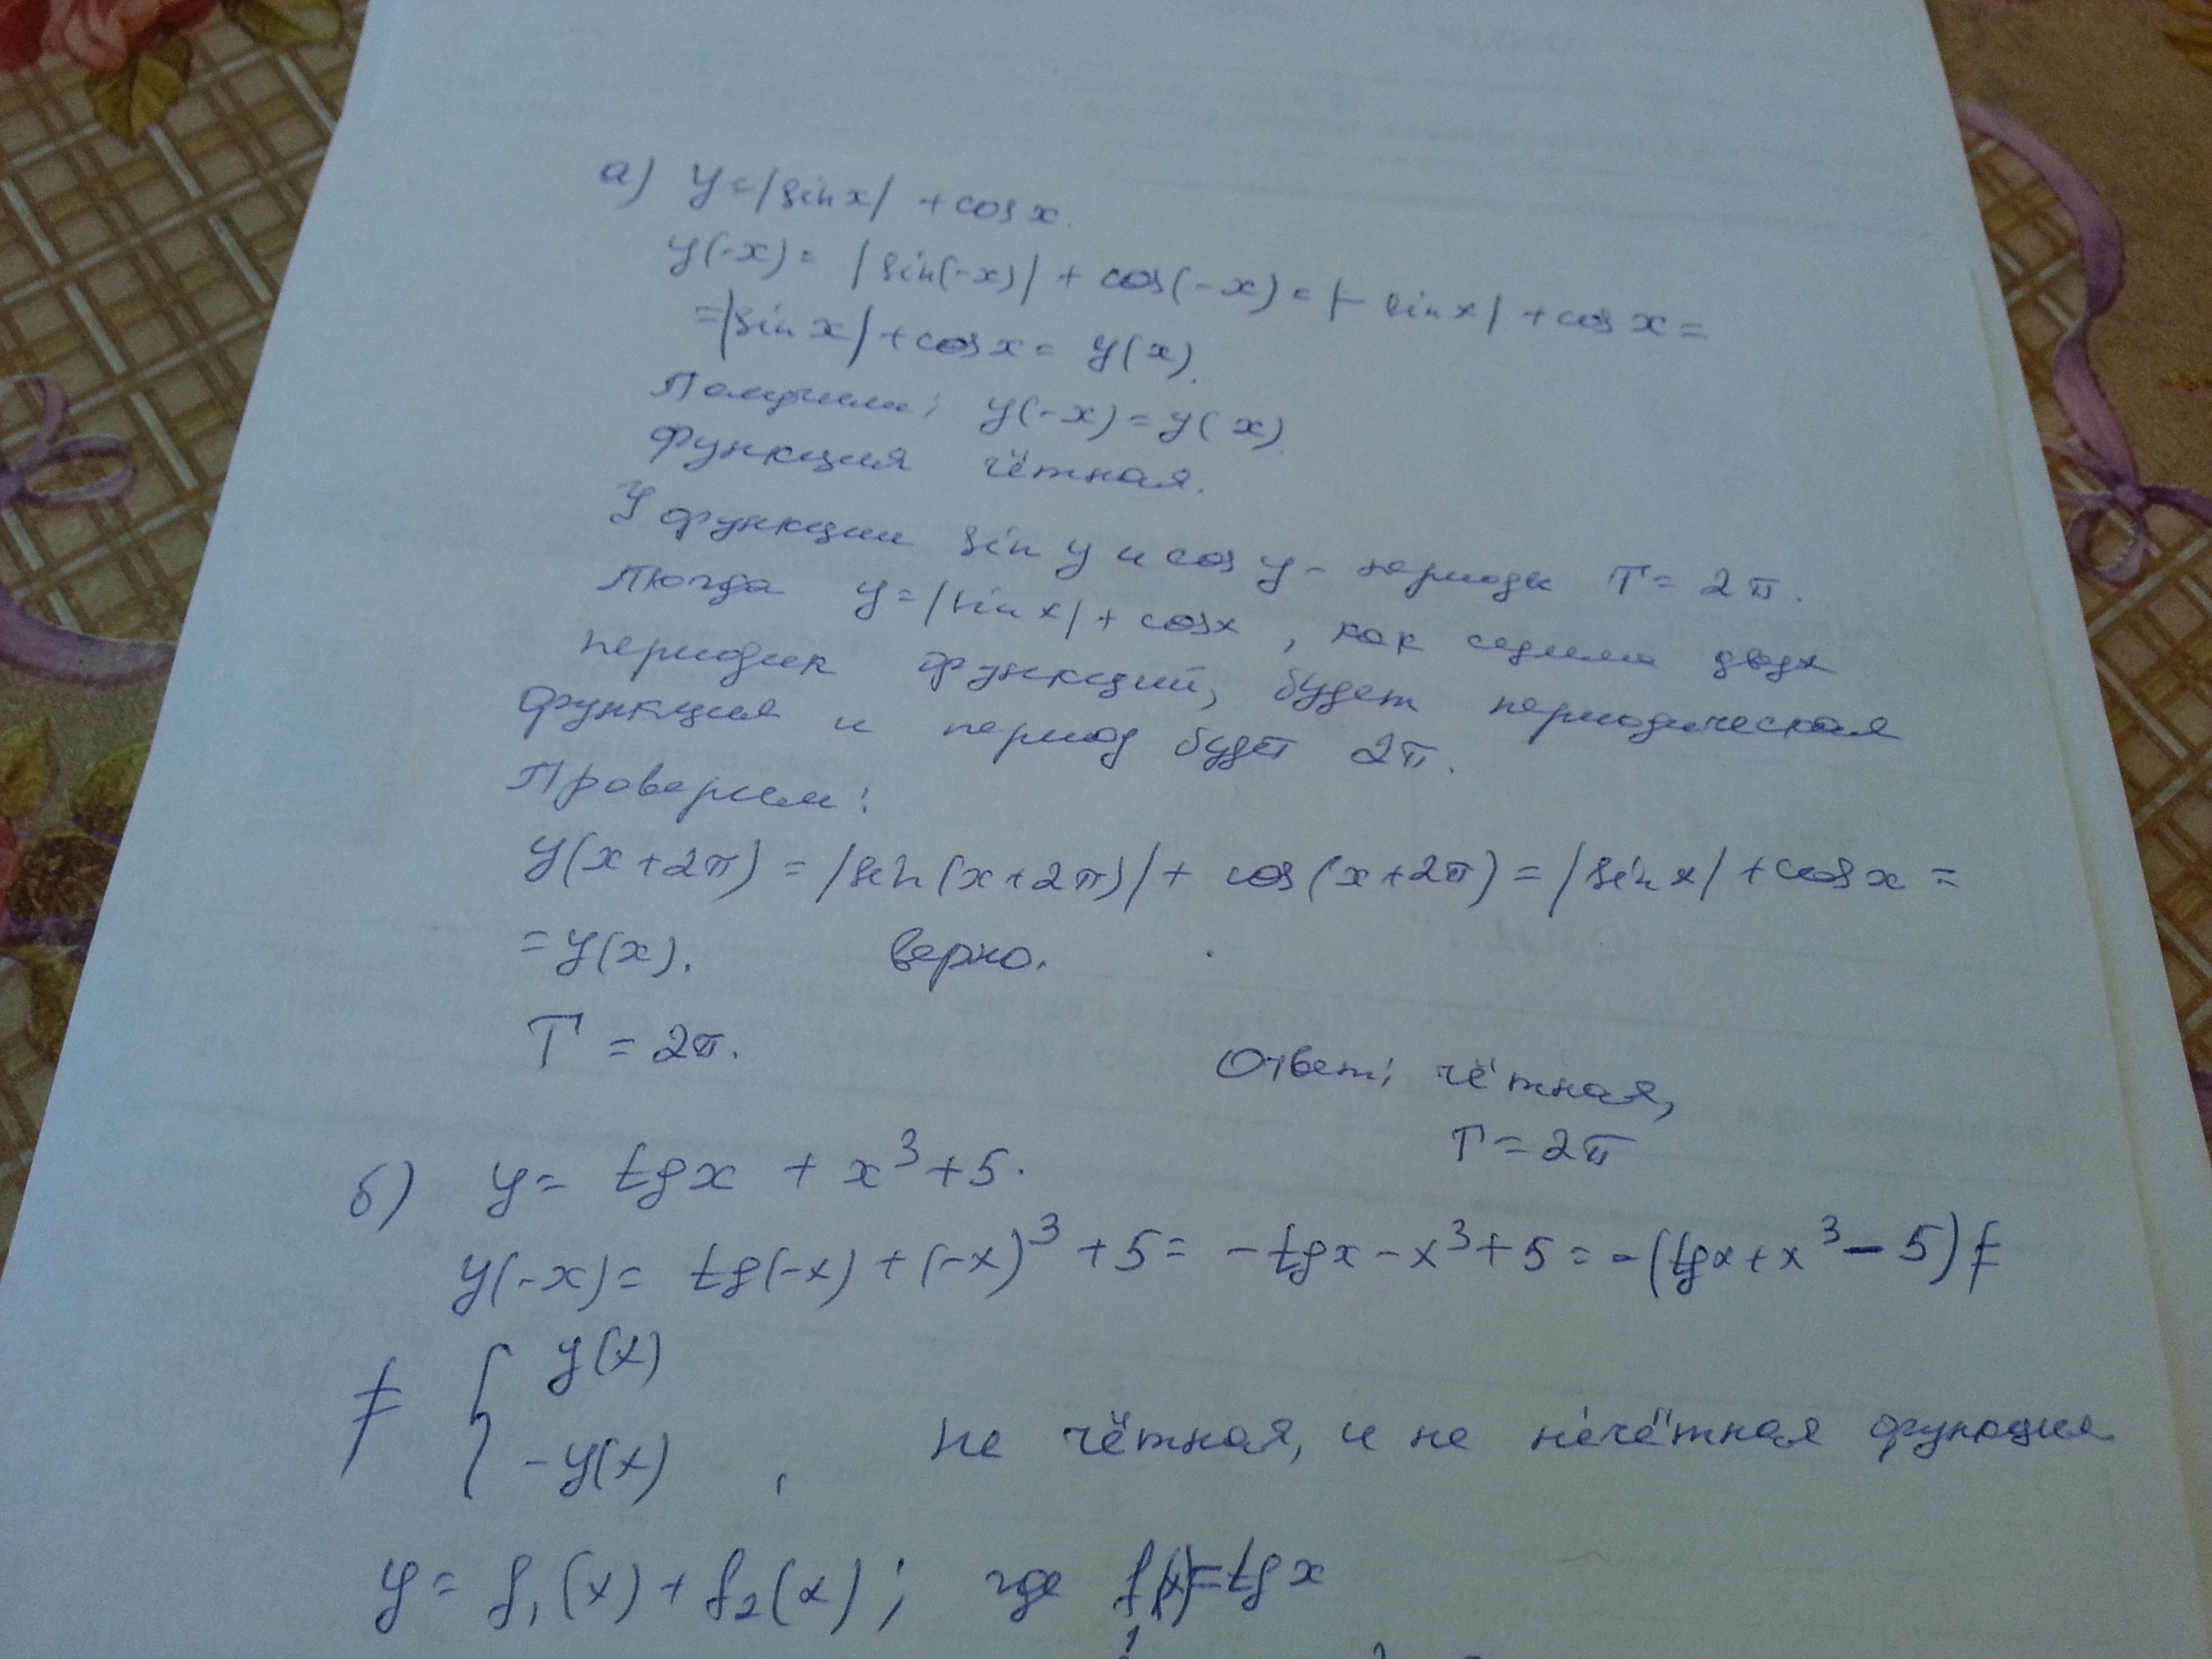 а) y=|sin x| + cos x.
y(-x)= |sin(-x)| + cos(-x) = |- sin x| + cos x =
=|sin x| + cos x = y(x).
Получили: y(-x) = y(x).
функция чётная.
У функции sin y и cos y - периоды T = 2π.
Тогда y=|sin x| + cos x, как сумма двух
периодик функций, будет периодическая
функция и период будет 2π.
Проверим:
y(x+2π) = |sin(x+2π)| + cos(x+2π) = |sin x| + cos x =
= y(x). верно.
T = 2π.
Ответ: чётная,
T = 2π
б) y = tg x + x³ + 5.
y(-x) = tg(-x) + (-x)³ + 5 = - tg x - x³ + 5 = - (tg x + x³ - 5) ≠
≠ { y(x)
-y(x) , не чётная, и не нечётная функция
y = f₁(x) + f₂(x); где f₁(x) = tg x